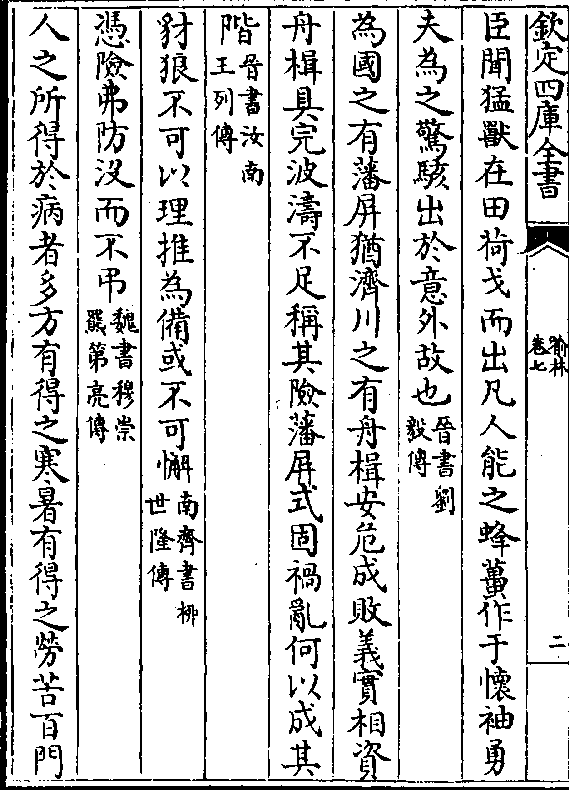 欽定四庫全書
喻林
卷七
二
臣聞猛獸在田荷戈而出凡人能之蜂蠆作于懷袖勇
夫為之驚駭出於意外故也晉書劉
毅傳
為國之有藩屏猶濟川之有舟楫安危成敗義實相資
舟楫具完波濤不足稱其險藩屏式固禍亂何以成其
階晉書汝南
王列傳
豺狼不可以理推為備或不可懈南齊書柳
世隆傳
憑險弗防没而不弔魏書穆崇
羆第亮傳
人之所得於病者多方有得之寒暑有得之勞苦百門